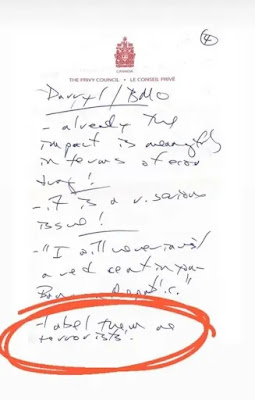 4
CANADA
THE PRIVY COUNCIL • LE CONSEIL PRIVÉ
Darryl / BMO
- already the
impact is meaningful
in terms of econ
- it is a v. serious
issue!
- "I will never invest
a red cent in your
Banana Republic."
- label them as
terrorists.